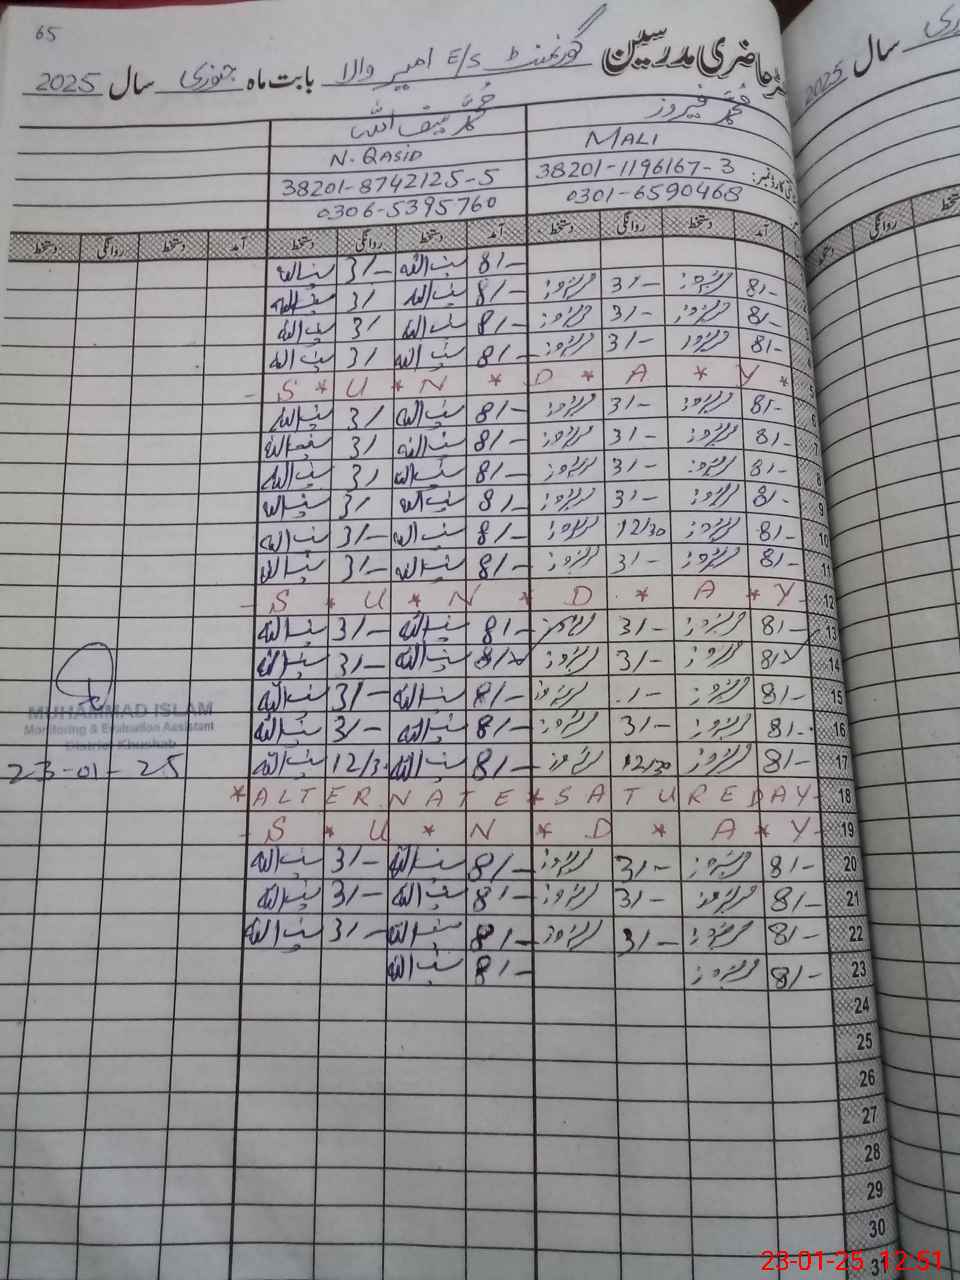 65
رجسٹر حاضری مدرسین گورنمنٹ E/S امیر والا بابت ماہ جنوری سال 2025
محمد فیروز محمد سیف اللہ
MALI N. QASID
38201-1196167-3 38201-8742125-5
0301-6590468 0306-5395760
آمد دستخط روانگی دستخط آمد دستخط روانگی دستخط آمد دستخط روانگی دستخط
8/- سیف اللہ 3/- سیف اللہ
8/- فیروز 3/- فیروز 8/- سیف اللہ 3/ سیف اللہ
3 8/- فیروز 3/- فیروز 8/- سیف اللہ 3/ سیف اللہ
4 8/- فیروز 3/- فیروز 8/- سیف اللہ 3/ سیف اللہ
5 - S * U * N * D * A * Y *
6 8/- فیروز 3/- فیروز 8/- سیف اللہ 3/ سیف اللہ
7 8/- فیروز 3/- فیروز 8/- سیف اللہ 3/ سیف اللہ
8 8/- فیروز 3/- فیروز 8/- سیف اللہ 3/ سیف اللہ
9 8/- فیروز 3/- فیروز 8/- سیف اللہ 3/ سیف اللہ
10 8/- فیروز 12/30 فیروز 8/- سیف اللہ 3/- سیف اللہ
11 8/- فیروز 3/- فیروز 8/- سیف اللہ 3/- سیف اللہ
12 - S * U * N * D * A * Y -
13 8/- فیروز 3/- فیروز 8/- سیف اللہ 3/- سیف اللہ
14 8/ فیروز 3/- فیروز 8/ سیف اللہ 3/- سیف اللہ
15 8/- فیروز فیروز 8/- سیف اللہ 3/- سیف اللہ
16 8/- فیروز 3/- فیروز 8/- سیف اللہ 3/- سیف اللہ
17 8/- فیروز 12/30 فیروز 8/- سیف اللہ 12/3 سیف اللہ
18 * ALTERNATE * SATUREDAY -
19 - S * U * N * D * A * Y -
20 8/- فیروز 3/- فیروز 8/- سیف اللہ 3/- سیف اللہ
21 8/- فیروز 3/- فیروز 8/- سیف اللہ 3/- سیف اللہ
22 8/- فیروز 3/- فیروز 8/- سیف اللہ 3/- سیف اللہ
23 8/- فیروز 8/- سیف اللہ
24
25
26
27
28
29
30
31
MUHAMMAD ISLAM
Monitoring & Evaluation Assistant
District Khushab
23-01-25
سال 2025
روانگی دستخط
23-01-25 12.51